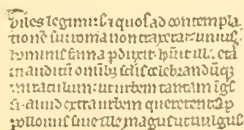 biles legimus: & quos ad contempla
tione sui roma non traxerat: unius
hominis fama pduxit. habuit illa eta
inauditū omnibus seclis celebrandūqz
miraculum: ut urbem tantam igres
si: aliud extra urbem quererent. ap
pollonius siue ille magus ut uulgus